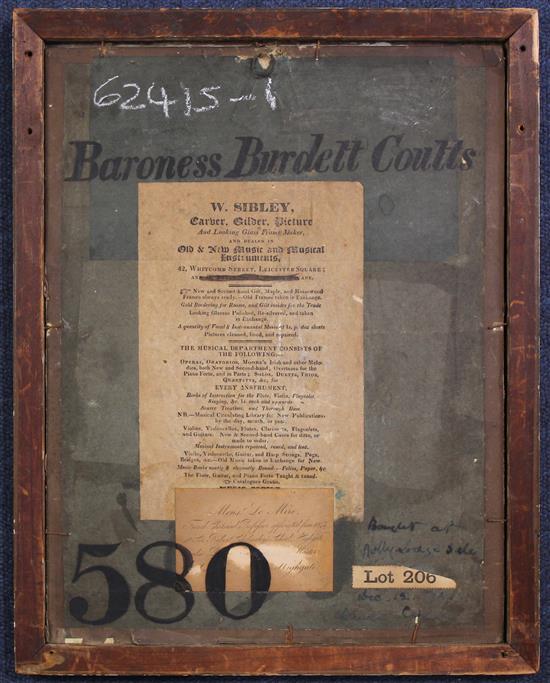 62415-1
Baroness Burdett Coutts
W. SIBLEY,
Carver, Gilder, Picture
And Looking Glass Frame Maker,
AND DEALER IN
Old & New Music and Musical
Instruments,
42, WHITCOMB STREET, LEICESTER SQUARE;
New and Second-hand Gilt, Maple, and Rosewood
Frames always ready.—Old Frames taken in Exchange.
Gold Bordering for Rooms, and Gilt insides for the Trade
Looking Glasses Polished, Re-silvered, and taken
in Exchange.
A quantity of Vocal & Instrumental Music at 1s. p. doz sheets
Pictures cleaned, lined, and repaired.
THE MUSICAL DEPARTMENT CONSISTS OF
THE FOLLOWING:—
OPERAS, ORATORIOS, MOORE'S Irish and other Melo-
dies, both New and Second-hand; Overtures for the
Piano Forte, and in Parts; SOLOS, DUETTS, TRIOS,
QUARTETTS, &c. for
EVERY INSTRUMENT.
Books of Instruction for the Flute, Violin, Flageolet
Singing, &c. 1s. each and upwards
Scarce Treatises and Thorough Bass.
NB.—Musical Circulating Library for New Publications
by the day, month, or year.
Violins, Violoncellos, Flutes, Clarionets, Flageolets,
and Guitars. New & Second-hand Cases for ditto, or
made to order.
Musical Instruments repaired, tuned, and lent.
Violin, Violoncello, Guitar, and Harp Strings, Pegs,
Bridges, &c.—Old Music taken in Exchange for New.
Music Books neatly & elegantly Bound.—Folios, Paper, &c.
The Flute, Guitar, and Piano Forte Taught & tuned.
Catalogues Gratis.
Mons. Le Mire,
Highgate
580
Bought at
Holly Lodge Sale
Lot 206
Dec